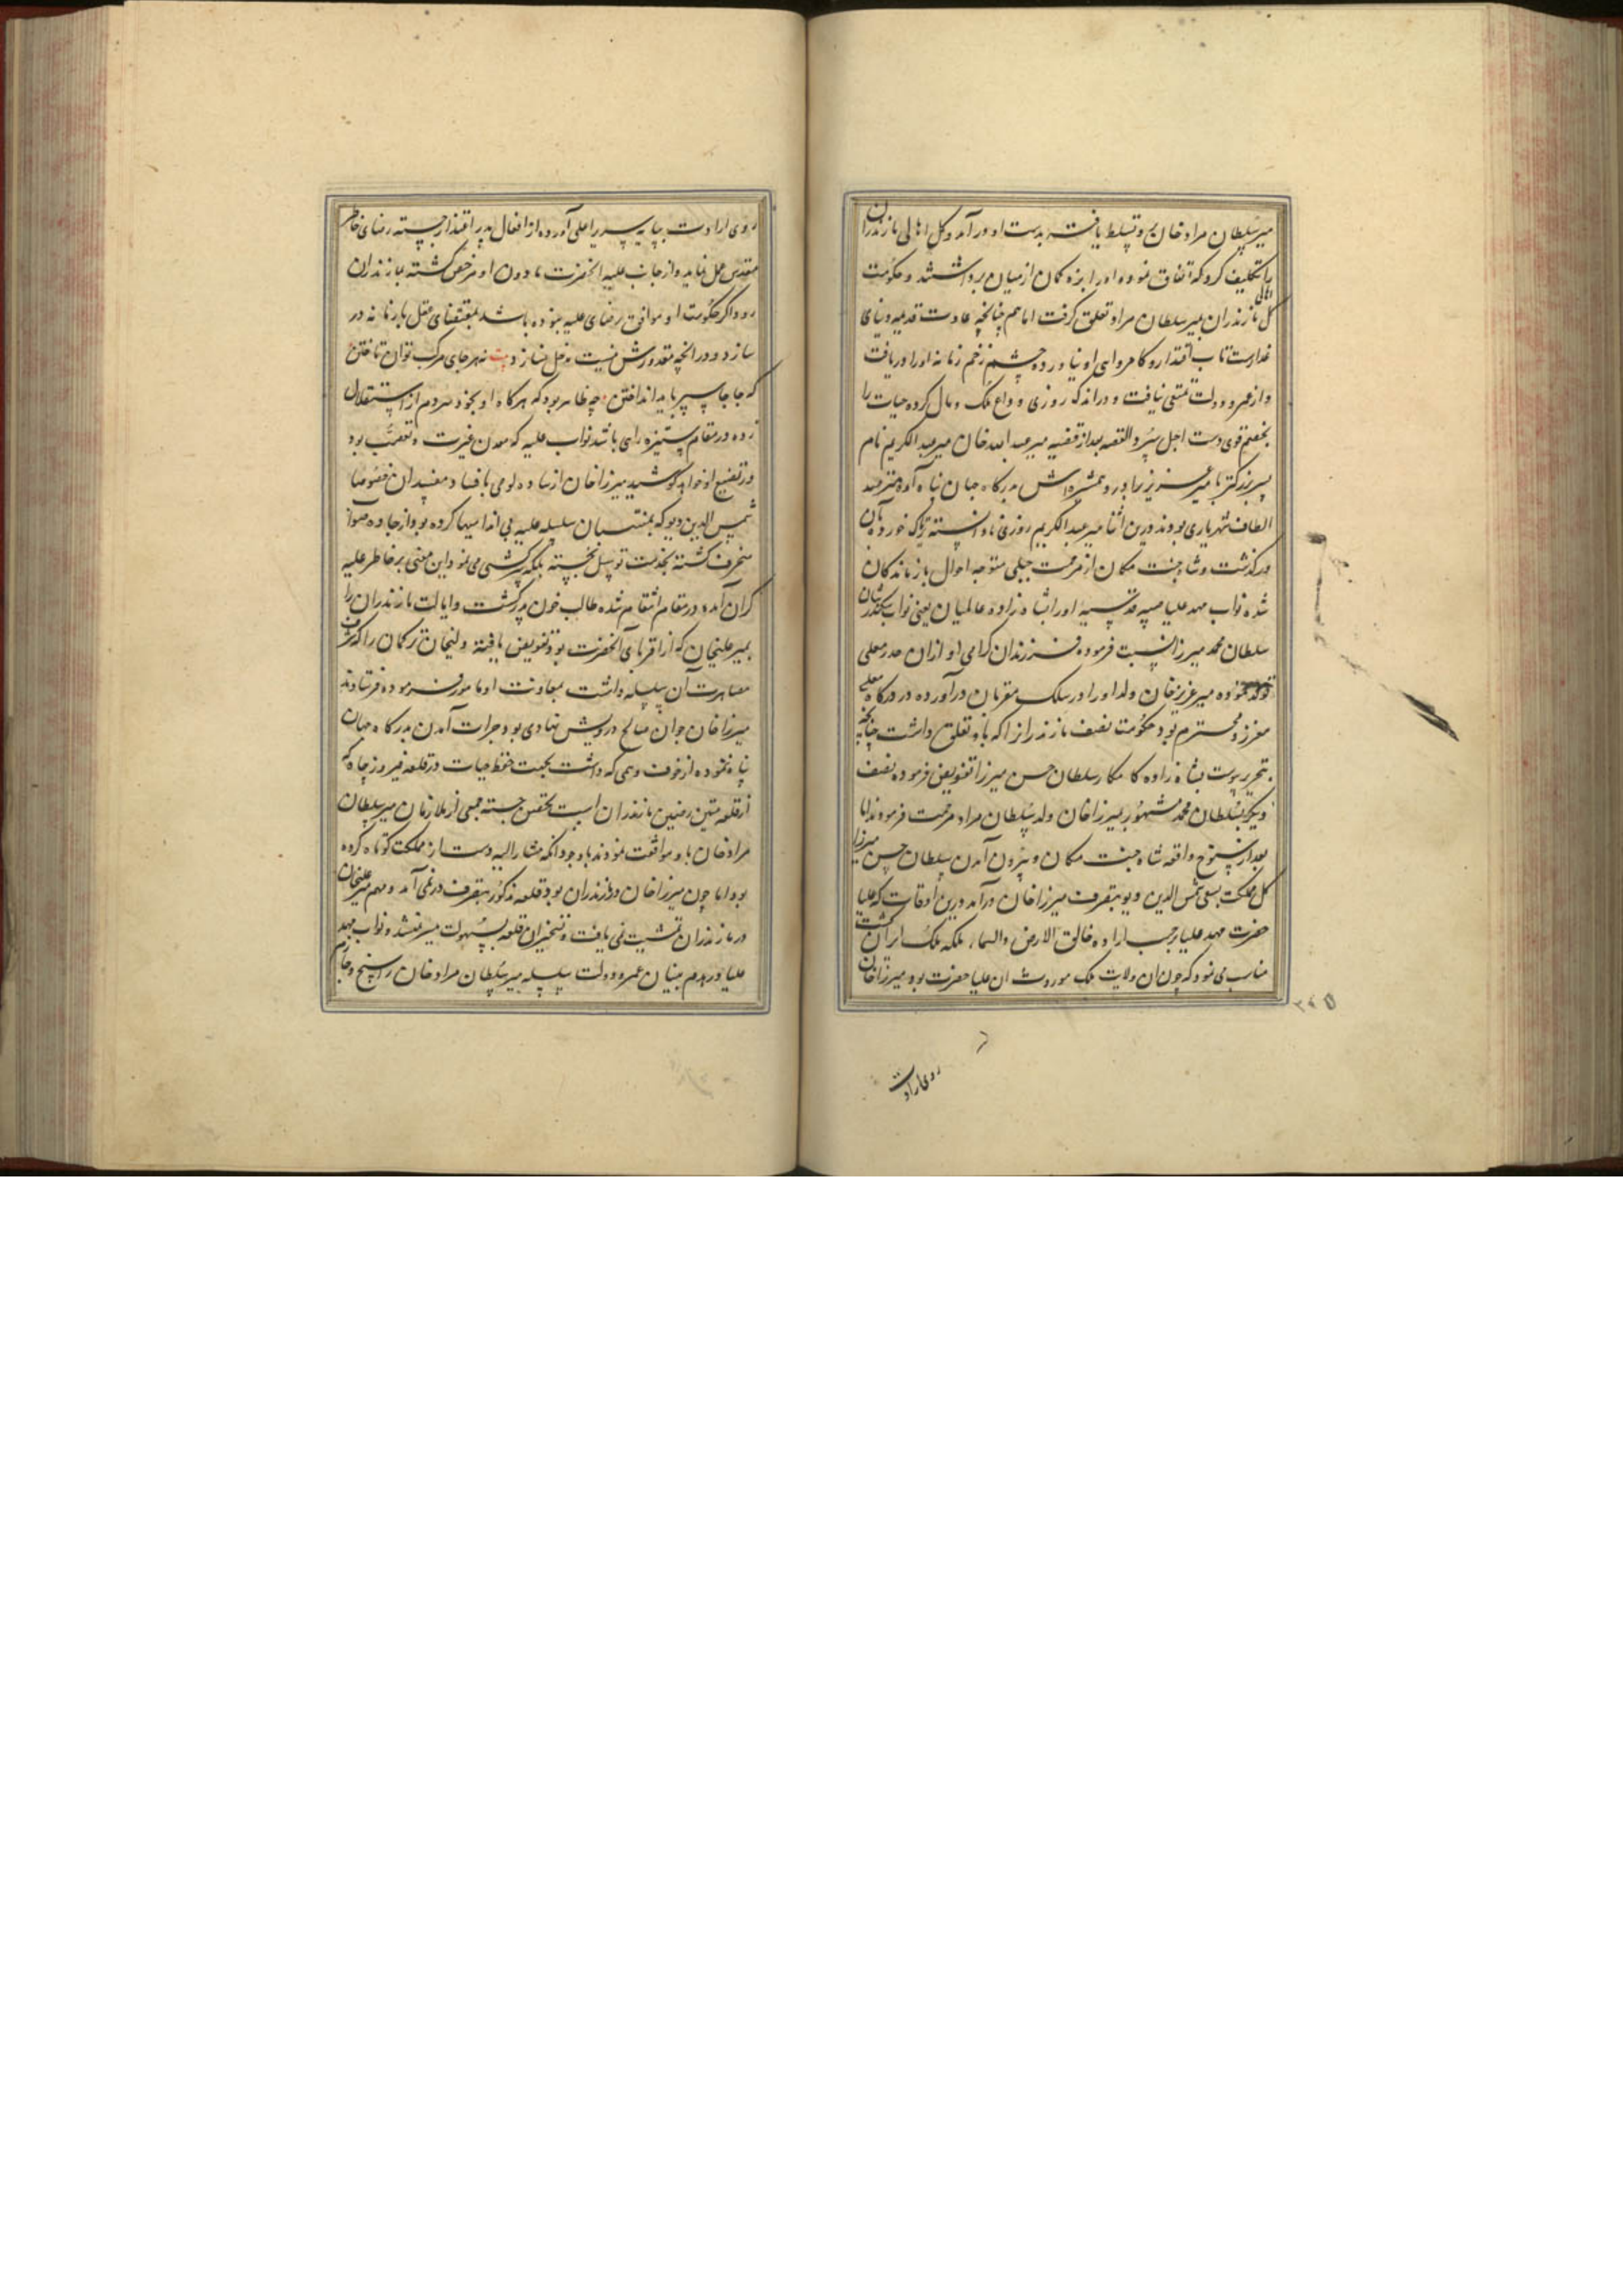 میر سلطان مراد خان برو تسلط یافته بدست او در آمد و کل اهالی مازندران
را تکلیف کرد که اتفاق نموده او را بزه کمان از میان برداشتند و حکومت
کل مازندران بمیر سلطان مراد تعلق گرفت اما هم چنانچه عادت قدیمه دنیای
غدارست تاب اقتدار و کامروایی او نیاورده چشم زخم زمانه او را دریافت
و از عمر و دولت تمتعی نیافت و در اندک روزی وداع ملک و مال کرده حیات را
بخصم قوی دست اجل سپرد القصه بعد از قضیه میر عبد الله خان میر عبد الکریم نام
پسر بزرگتر با میر عزیز برادر و همشیره اش بدرگاه جهان پناه آمده
الطاف شهریاری بودند درین اثنا میر عبد الکریم روزی نادانسته تریاک خورده
درگذشت و شاه جنت مکان از مرحمت جبلی متوجه احوال بازماندگان
شده نواب مهد علیا صبیه قدسیه او را بشاهزاده عالمیان یعنی نواب سکندرشان
سلطان محمد میرزا نسبت فرموده فرزندان گرامی او ازان صدر معلی
تولد نموده میر عزیز خان ولد او را در سلک مقربان در آورده در درگاه معلی
معزز و محترم بود حکومت نصف مازندران را که باو تعلق داشت چنانچه
تحریر پیوست بشاهزاده کامکار سلطان حسن میرزا تفویض فرموده نصف
دیگر بسلطان محمد مشهور بمیرزا خان ولد سلطان مراد مرحمت فرمودند اما
بعد از سنوح واقعه شاه جنت مکان و بیرون آمدن سلطان حسن میرزا
کل مملکت بسعی شمس الدین دیو بتصرف میرزا خان در آمد درین اوقات که علیا
حضرت مهد علیا بر حسب اراده خالق الارض والسما ملکه ملک ایران گشت
مناسب می نمود که چون آن ولایت ملک موروث آن علیا حضرت بود میرزا خان
روی ارادت
روی ارادت بپایه سریر اعلی آورده از افعال پدر اعتذار جسته رضای خاطر
مقدس عمل نماید و از جانب علیه الحضرت ماذون و مرخص گشته بمازندران
رود و اگر حکومت او موافق رضای علیه نبوده باشد بمقتضای عقل بازمانه در
سازد و در انچه مقدورش نیست دخل نسازد بیت نه هر جای مرکب توان تاختن
که جاها سپر باید انداختن چه ظاهر بود که هرگاه او بخود سر دم از استقلال
زده در مقام ستیزه رای باشد نواب علیه که معدن غیرت و تعصب بود
در تضییع او خواهد کوشید میرزا خان از ساده لوحی بافساد مفسدان خصوصا
شمس الدین دیو که بمنتسبان سلسله علیه بی اندامیها کرده بود از جاده صواب
منحرف گشته بخدمت توسل نجسته بلکه سرکشی می نمود این معنی بر خاطر علیه
گران آمده در مقام انتقام شده طالب خون پدر گشت و ایالت مازندران را
بمیر علیخان که از اقربای آنحضرت بود تفویض یافته ولیخان ترکمان را که شرف
مصاهرت آن سلسله داشت بمعاونت او مامور فرموده فرستادند
میرزا خان جوان صالح درویش نهادی بود جرات آمدن بدرگاه جهان
پناه ننموده از خوف و همی که داشت بجهت حفظ حیات در قلعه فیروز جاه که
از قلعه متین رصین مازندران است تحصن جسته جمعی از ملازمان میر سلطان
مراد خان باو موافقت نمودند با وجود آنکه مشار الیه دست از مملکت کوتاه کرده
بود اما چون میرزا خان در مازندران بود قلعه مذکور بتصرف در نمی آمد و مهم میر علیخان
در مازندران تمشیت نمی یافت و تسخیر آن قلعه بسهولت میسر نمیشد و نواب مهد
علیا در هدم بنیان عمر و دولت سلسله میر سلطان مراد خان راسخ و جازم